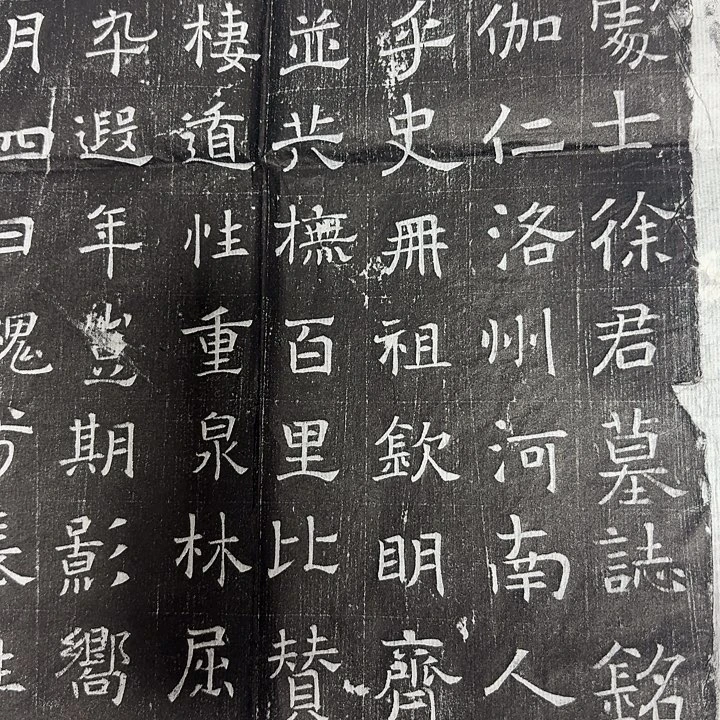 處士徐君墓誌銘
伽仁洛州河南人
乎史冊祖欽明齊
並共撫百里比贊
棲道性重泉林屈
卆遐年豈期影嚮
月四日槐